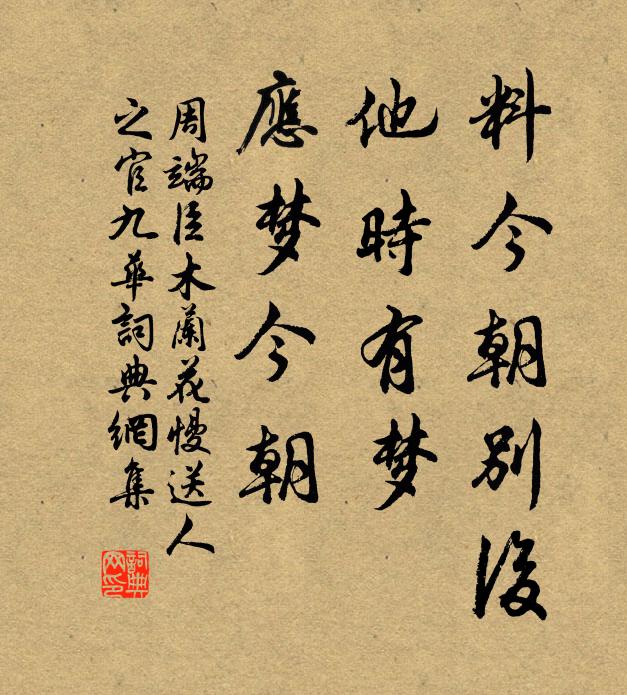 料今朝別後
他時有梦
應梦今朝
周端臣木蘭花慢送人
之官九華詞典網集
詞典网印